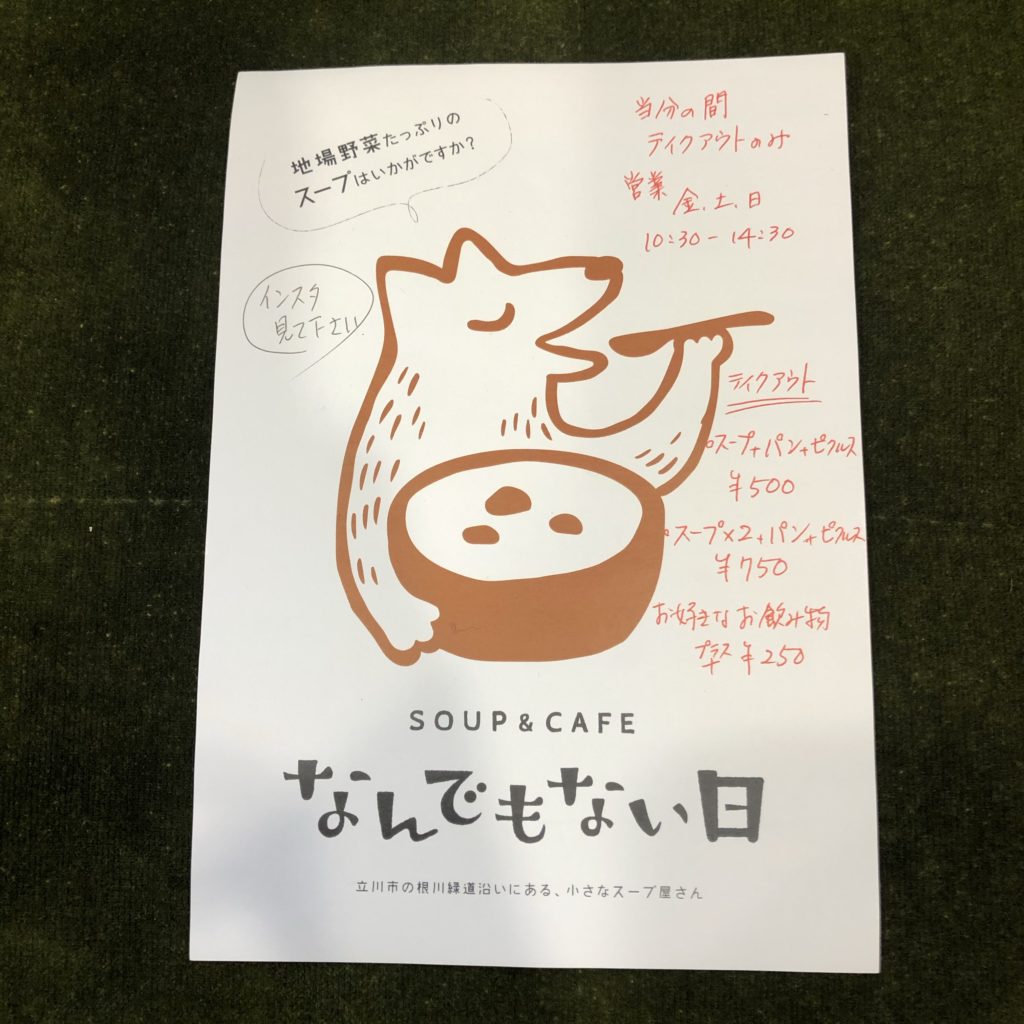 地場野菜たっぷりの
スープはいかがですか?
当分の間
テイクアウトのみ
営業 金、土、日
10:30-14:30
インスタ
見て下さい
テイクアウト
○スープ+パン+ピクルス
¥500
○スープ×2+パン+ピクルス
¥750
お好きなお飲み物
プラス ¥250
SOUP & CAFE
なんでもない日
立川市の根川緑道沿いにある、小さなスープ屋さん